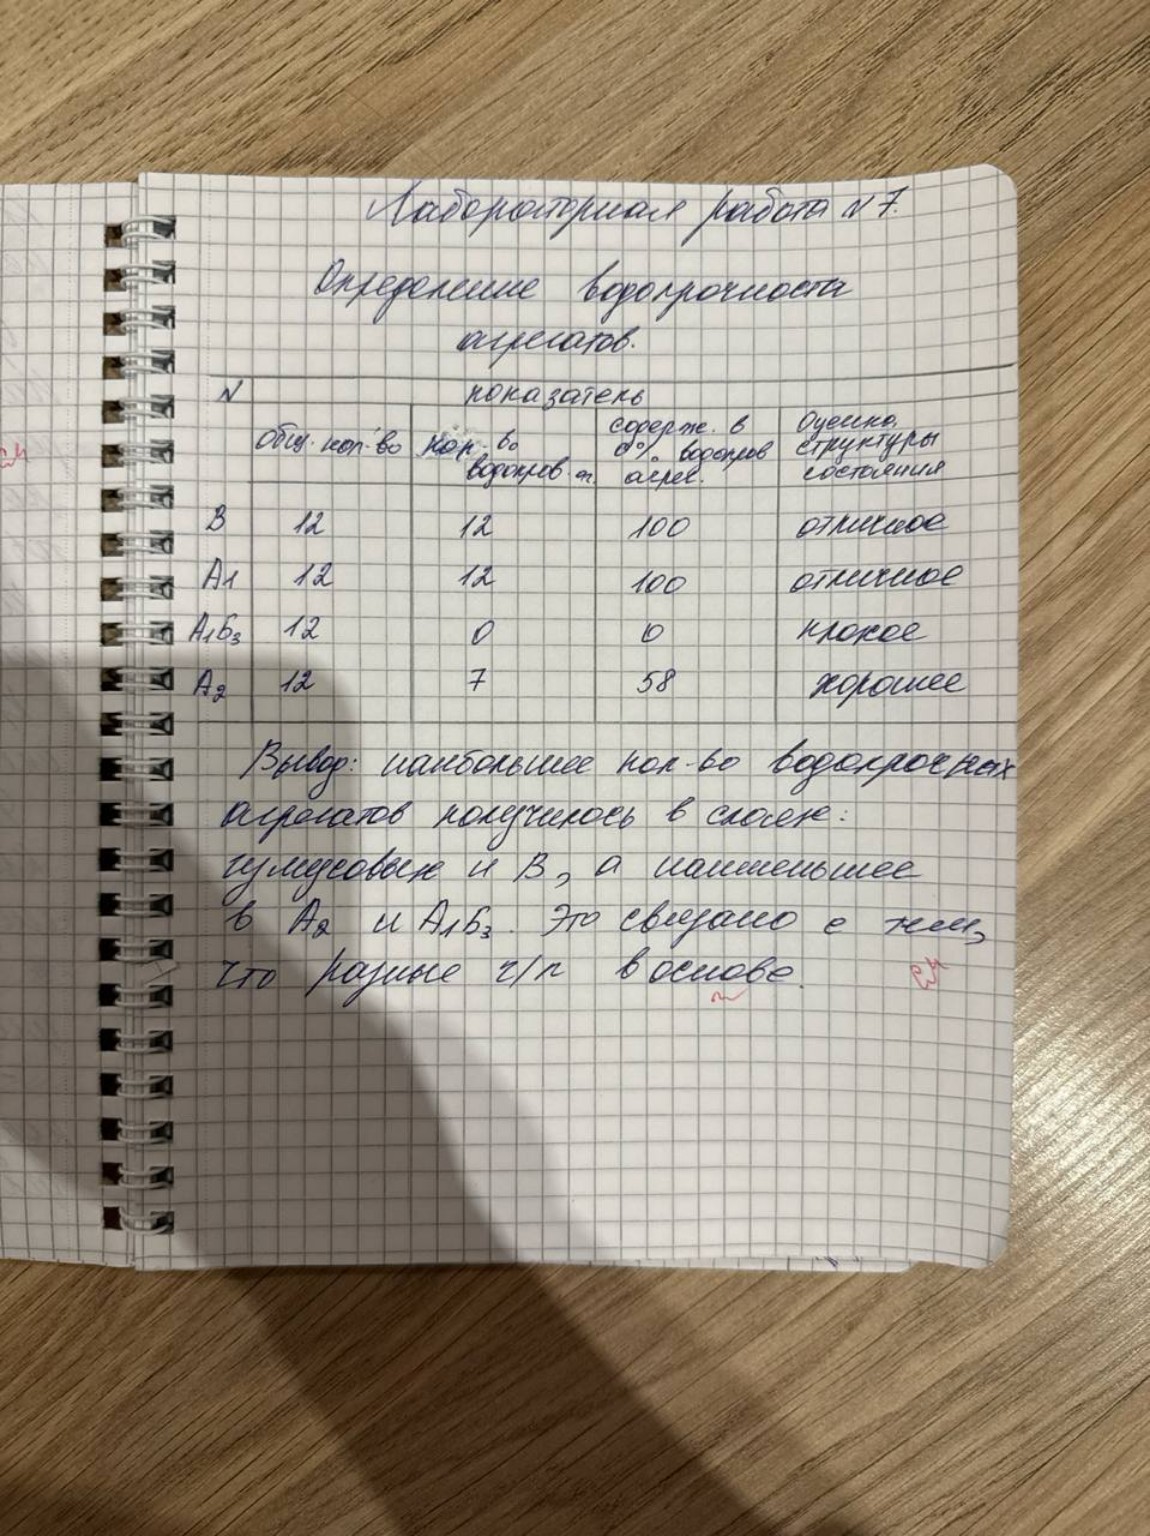 Лабораторная работа N 7.
Определение водопрочности
агрегатов.
N показатель
общ. кол-во кол-во водопров. аг. содерж. в % водопров агрег. Оценка структуры состояния
В 12 12 100 отличное
А1 12 12 100 отличное
А1Б3 12 0 0 плохое
А2 12 7 58 хорошее
Вывод: наибольшее кол-во водопрочных
агрегатов получилось в слоях:
гумусовых и В, а наименьшее
в А2 и А1Б3. Это связано с тем,
что разные г/п в основе.